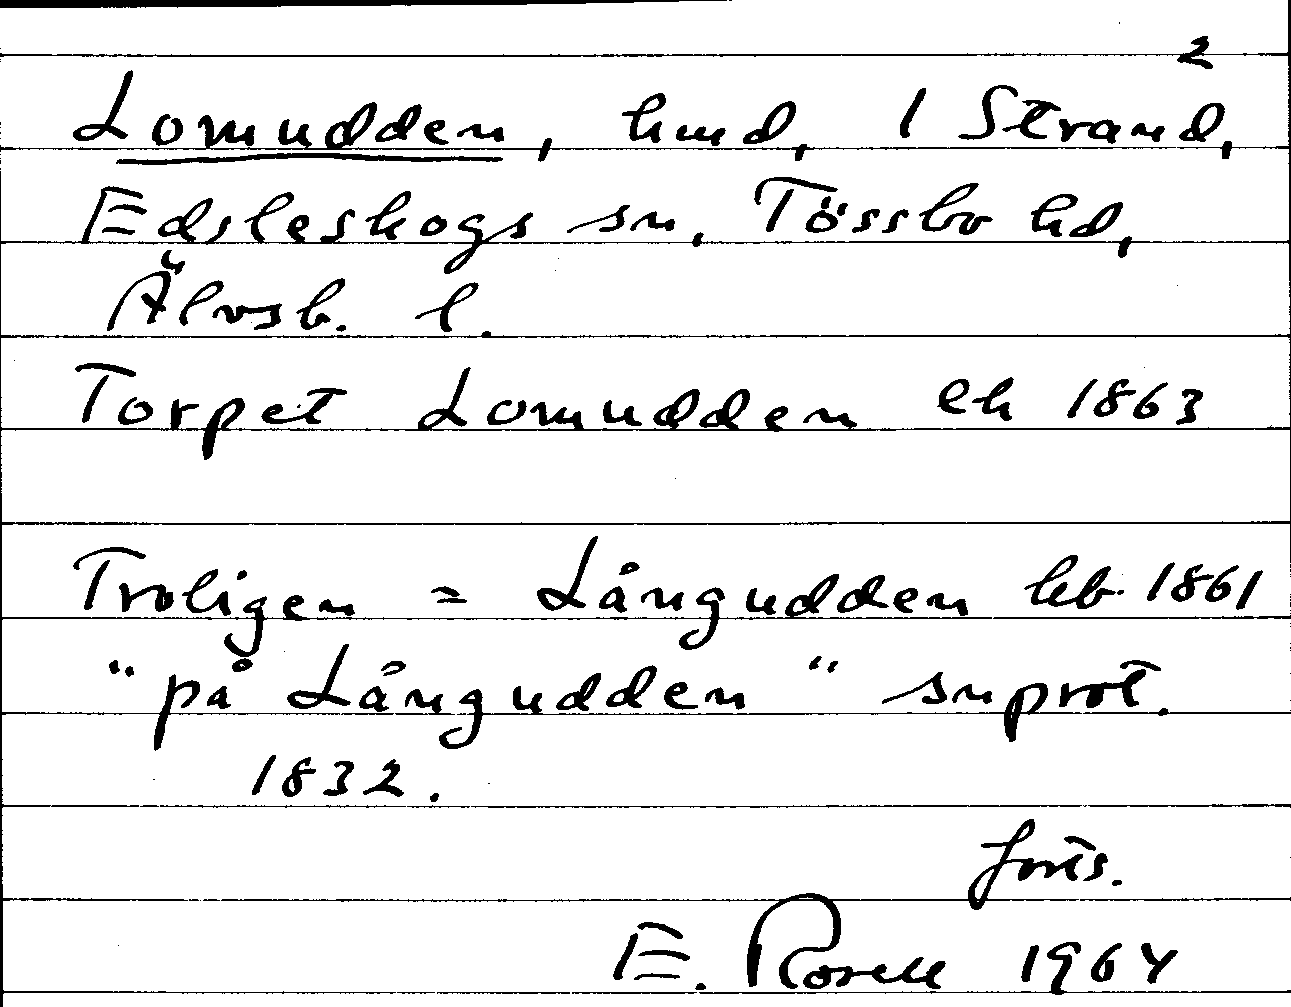 Lomudden, hmd, 1 Strand, 2
Edsleskogs sn, Tössbo hd,
Älvsb. l.
Torpet Lomudden ek 1863
Troligen = Långudden hb. 1861
"på Långudden" snprot.
1832.
forts.
E. Rosell 1964